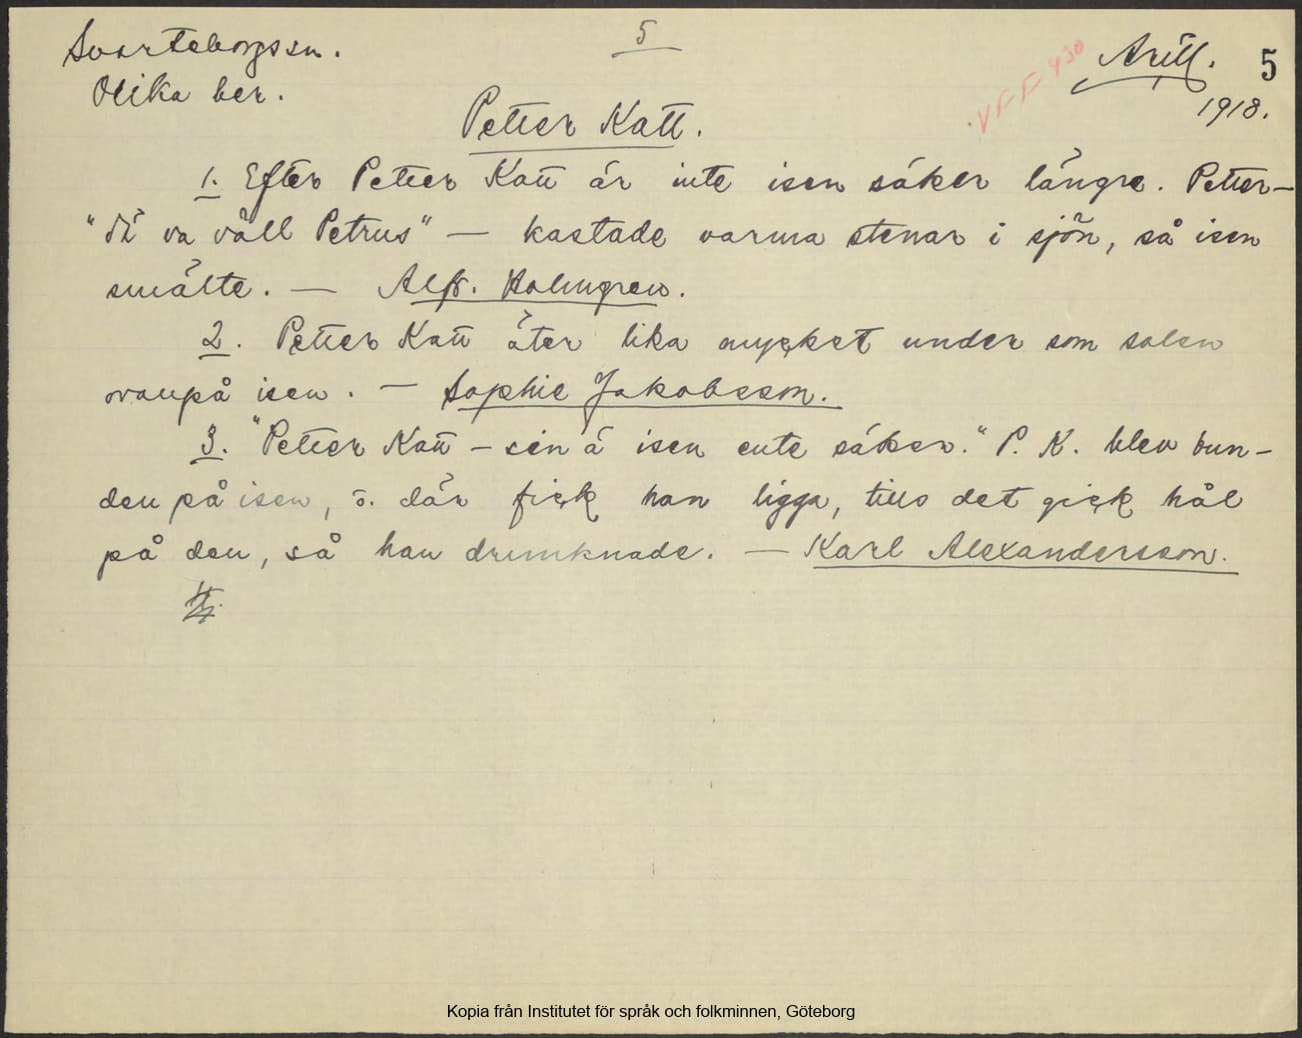 Svarteborgssn.
5
Arill.
5
Olika ber.
VFF 430
1918.
Petter Katt.
1. Efter Petter Katt är inte isen säker längre. Petter –
"dä va väll Petrus" – kastade varma stenar i sjön, så isen
smälte. – Alfr. Holmgren.
2. Petter Katt äter lika mycket under som solen
ovanpå isen. – Sophie Jakobsson.
3. "Petter Katt – sen ä isen ente säker." P. K. blev bun-
den på isen, o. där fick han ligga, tills det gick hål
på den, så han drunknade. – Karl Alexandersson.
Kopia från Institutet för språk och folkminnen, Göteborg